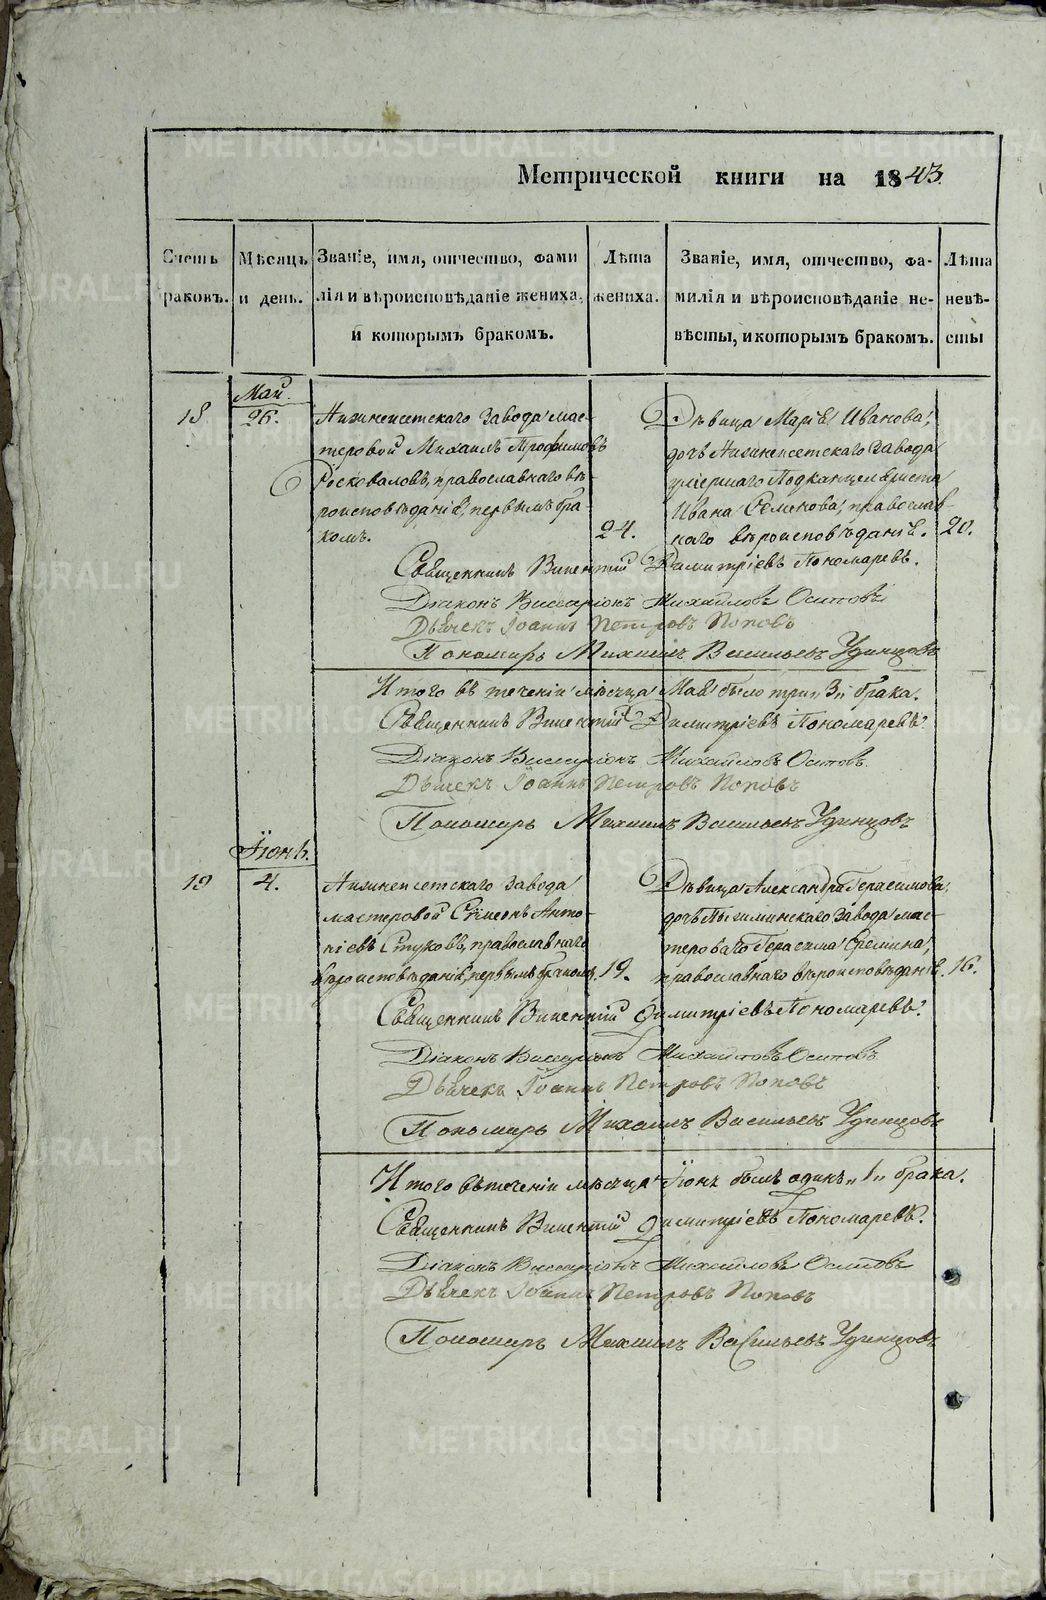 Метрической книги на 1843.
Счетъ браковъ.
Мѣсяцъ и день.
Званіе, имя, отчество, фами
лія и вѣроисповѣданіе жениха,
и которымъ бракомъ.
Лѣта
жениха.
Званіе, имя, отчество, фа-
милія и вѣроисповѣданіе не-
вѣсты, и которымъ бракомъ.
Лѣта
невѣ-
сты
Май.
18
26.
Нижнеисетскаго Завода мас-
теровой Михаилъ Трофимовъ
Росковаловъ, православнаго вѣ-
роисповѣданія, первымъ бра-
комъ.
24.
Дѣвица Марія Иванова,
дочь Нижнеисетскаго Завода
умершаго Подканцеляриста
Ивана Семенова, православ-
наго вѣроисповѣданія.
20.
Священникъ Викентій Димитріевъ Пономаревъ.
Діаконъ Виссаріонъ Михайловъ Осиповъ
Дьячекъ Іоаннъ Петровъ Поповъ
Пономарь Михаилъ Васильевъ Удинцовъ
Итого въ теченіи мѣсяца Маія было три „3„ брака.
Священникъ Викентій Димитріевъ Пономаревъ.
Діаконъ Виссаріонъ Михайловъ Осиповъ.
Дьячекъ Іоаннъ Петровъ Поповъ
Пономарь Михаилъ Васильевъ Удинцовъ
Іюнь.
19
4.
Нижнеисетскаго Завода
мастеровой Симеонъ Анто-
ніевъ Стуковъ, православнаго
вѣроисповѣданія, первымъ бракомъ.
19.
Дѣвица Александра Герасимова,
дочь Пышминскаго Завода мас-
тероваго Герасима Еремина,
православнаго вѣроисповѣданія.
16.
Священникъ Викентій Димитріевъ Пономаревъ.
Діаконъ Виссаріонъ Михайловъ Осиповъ
Дьячекъ Іоаннъ Петровъ Поповъ
Пономарь Михаилъ Васильевъ Удинцовъ
Итого въ теченіи мѣсяца Іюня былъ одинъ „1„ брака.
Священникъ Викентій Димитріевъ Пономаревъ.
Діаконъ Виссаріонъ Михайловъ Осиповъ
Дьячекъ Іоаннъ Петровъ Поповъ
Пономарь Михаилъ Васильевъ Удинцовъ
METRIKI.GASO-URAL.RU